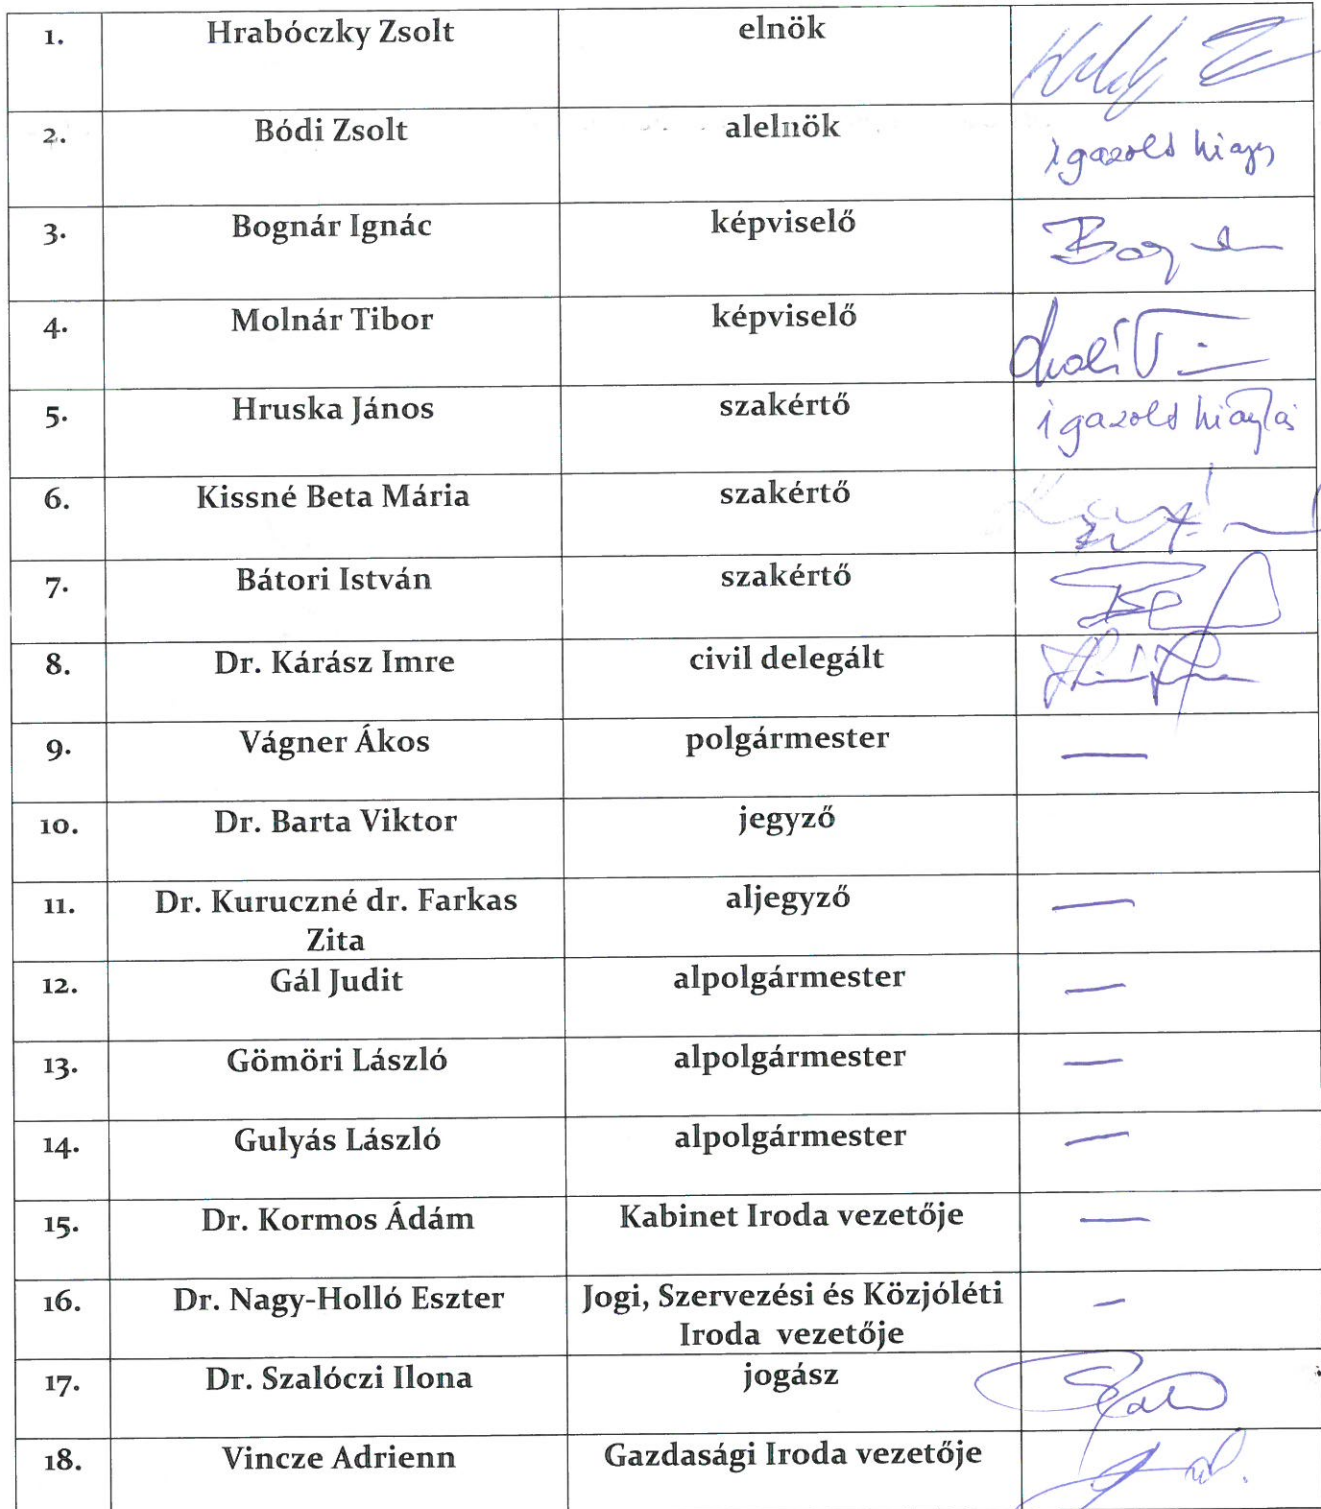 1. Hrabóczky Zsolt elnök
2. Bódi Zsolt alelnök igazolt
3. Bognár Ignác képviselő
4. Molnár Tibor képviselő
5. Hruska János szakértő igazolt hiányzás
6. Kissné Beta Mária szakértő
7. Bátori István szakértő
8. Dr. Kárász Imre civil delegált
9. Vágner Ákos polgármester —
10. Dr. Barta Viktor jegyző
11. Dr. Kuruczné dr. Farkas aljegyző —
Zita
12. Gál Judit alpolgármester —
13. Gömöri László alpolgármester —
14. Gulyás László alpolgármester —
15. Dr. Kormos Ádám Kabinet Iroda vezetője —
16. Dr. Nagy-Holló Eszter Jogi, Szervezési és Közjóléti —
Iroda vezetője
17. Dr. Szalóczi Ilona jogász
18. Vincze Adrienn Gazdasági Iroda vezetője